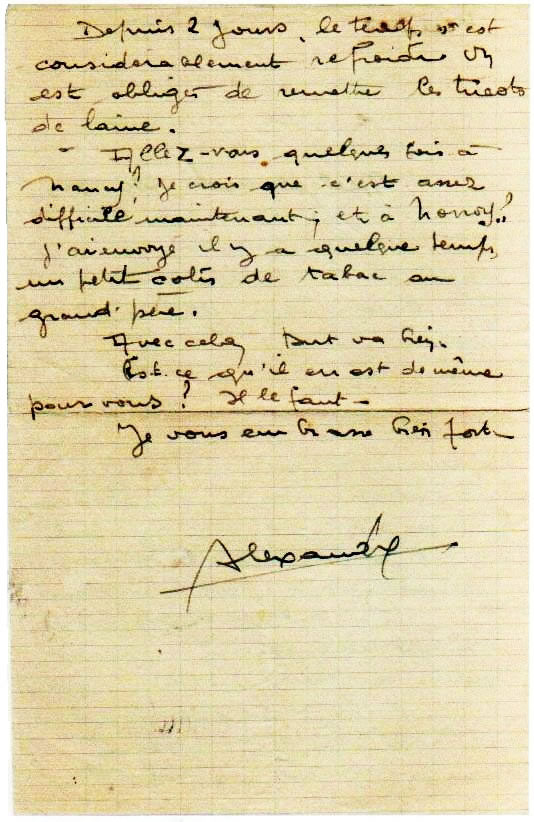 Depuis 2 jours, le temps s'est
considérablement refroidi. On
est obligés de remettre les tricots
de laine.
Allez-vous quelques fois à
Nancy? Je crois que c'est assez
difficile maintenant; et à Norroy?
J'ai envoyé il y a quelque temps
un petit colis de tabac au
grand'père.
Avec cela, tout va bien.
Est-ce qu'il en est de même
pour vous? Il le faut -
Je vous embrasse bien fort -
Alexandre